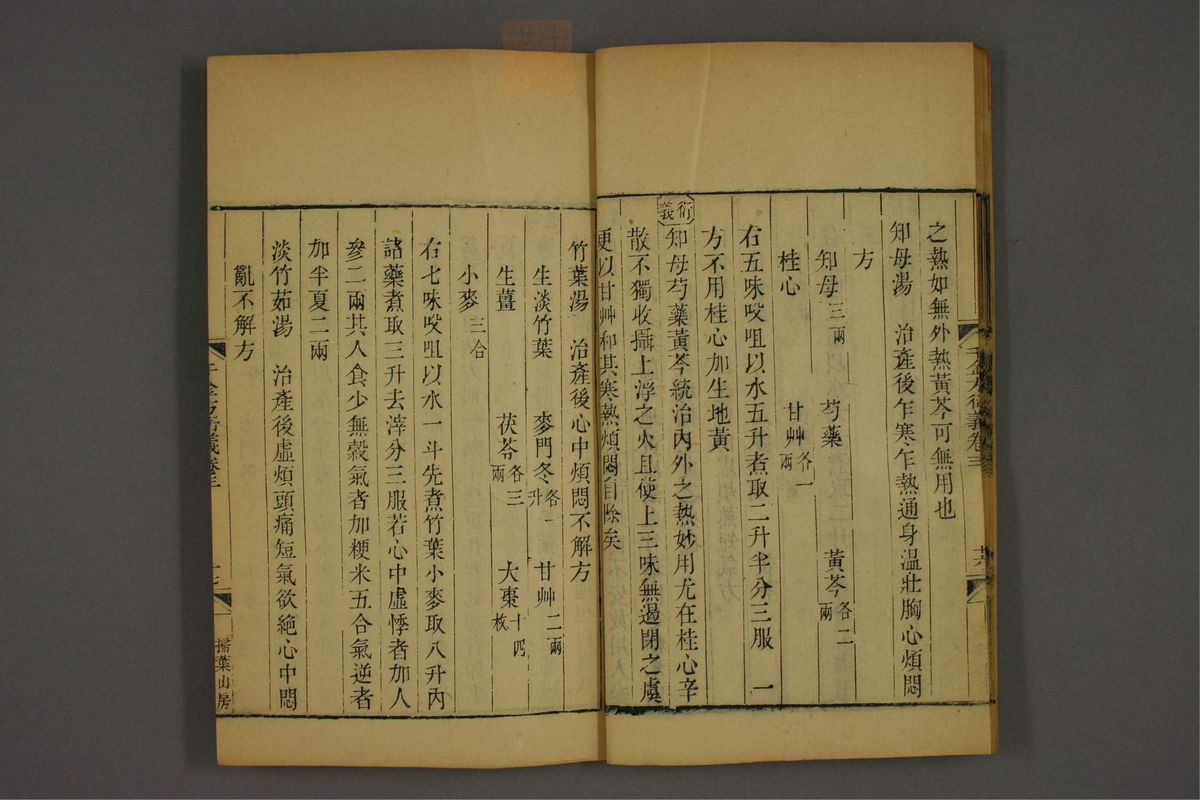 之熱如無外熱黃芩可無用也
知母湯　治產後乍寒乍熱通身溫壯胸心煩悶
方
知母三兩　芍藥　黃芩各二兩
桂心　甘艸各一兩
右五味㕮咀以水五升煮取二升半分三服　一
方不用桂心加生地黃
衍義
知母芍藥黃芩統治內外之熱妙用尤在桂心辛
散不獨收攝上浮之火且使上三味無遏閉之虞
更以甘艸和其寒熱煩悶自除矣
千金方衍義卷三
竹葉湯　治產後心中煩悶不解方
生淡竹葉　麥門冬各一升　甘艸二兩
生薑　茯苓各三兩　大棗十四枚
小麥三合
右七味㕮咀以水一斗先煮竹葉小麥取八升內
諸藥煮取三升去滓分三服若心中虛悸者加人
參二兩其人食少無穀氣者加粳米五合氣逆者
加半夏二兩
淡竹茹湯　治產後虛煩頭痛短氣欲絕心中悶
亂不解方
千金方衍義卷三
掃葉山房